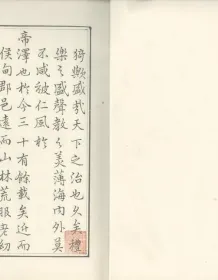 猗歟盛哉天下之治也久矣禮
樂之盛聲教之美薄海內外莫
不咸被仁風於
帝澤也於今三十有餘載矣近而
侯甸郡邑遠而山林荒服老幼